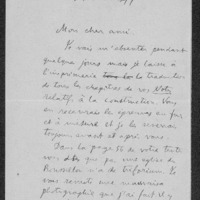 Mon cher ami
Je vais m'absenter pendant
quelques jours mais je laisse à
l'imprimerie la traduction
de tous les chapitres de vos Notes
relatif à la construction. Vous
en recevrez les épreuves au fur
et à mesure et je les recevrai
toujours avant et après vous
Dans la page de votre texte
vous dites que pas une église du
Roussillon n'a de triforium. Je
vous envoie une mauvaise
photographie que j'ai fait il y